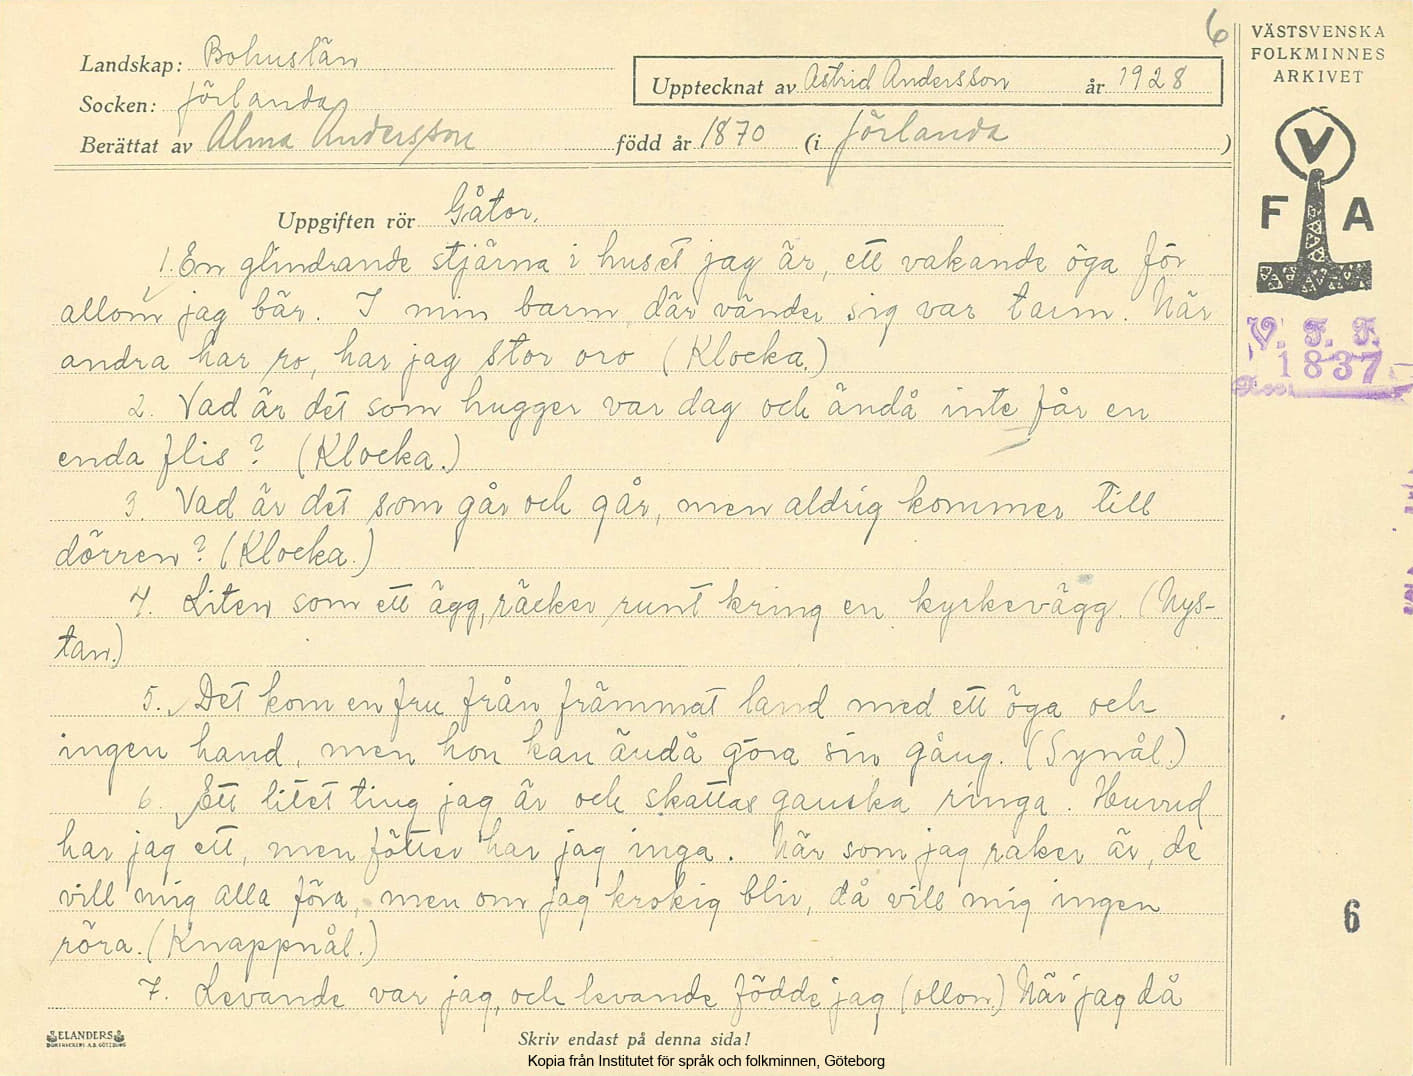 6
VÄSTSVENSKA
FOLKMINNES
ARKIVET
Landskap: Bohuslän
Upptecknat av Astrid Andersson år 1928
Socken: Jörlanda
Berättat av Alma Andersson född år 1870 (i Jörlanda)
V
F A
Uppgiften rör Gåtor.
1. En glindrande stjärna i huset jag är, ett vakande öga för
allom jag bär. I min barm där vänder sig var tarm. När
andra har ro, har jag stor oro (Klocka.)
V. F. F.
1837
2. Vad är det som hugger var dag och ändå inte får en
enda flis? (Klocka.)
3. Vad är det som går och går, men aldrig kommer till
dörren? (Klocka.)
4. Liten som ett ägg, räcker runt kring en kyrkevägg. (Nys-
tan.)
5. Det kom en fru från främmat land med ett öga och
ingen hand, men hon kan ändå göra sin gång. (Synål.)
6. Ett litet ting jag är och skattas ganska ringa. Huvud
har jag ett, men fötter har jag inga. När som jag raker är, de
vill mig alla föra, men om jag krokig blir, då vill mig ingen
röra. (Knappnål.)
6
7. Levande var jag, och levande födde jag (ollon.) När jag då
ELANDERS
Skriv endast på denna sida!
Kopia från Institutet för språk och folkminnen, Göteborg